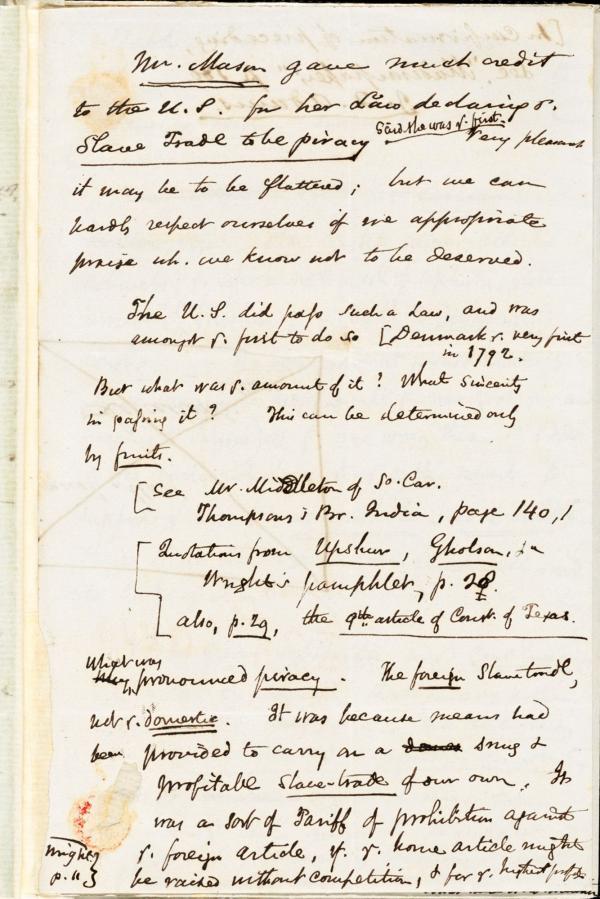 Mr. Mason gave much credit
to the U.S. for her Law declaring ye.
Slave Trade to be piracy said she was ye. first. Very pleasant
it may be to be flattered; but we can
hardly respect ourselves if we appropriate
praise wh. we know not to be deserved.
The U.S. did pass such a Law, and was
amongst ye. first to do so [Denmark ye. very first
in 1792.
But what was ye. amount of it? What sincerity
in passing it? This can be determined only
by fruits.
[See Mr. Middleton of So. Car.
Thompson's Br. India, page 140,1
[Quotations from Upshur, Gholson, in
Wright's pamphlet, p. 28.
also, p. 29, the 9th article of Const. of Texas.
What was
pronounced piracy. The foreign Slave trade,
not ye. domestic. It was because means had
been provided to carry on a snug &
profitable slave-trade of our own. It
was a sort of Tariff of prohibition against
ye. foreign article, yt. ye. home article might
be raised without competition, & for ye. highest
Wright
p. 11.}